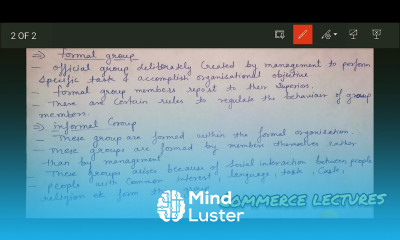 2 OF 2
⇒ formal group
- official group deliberately created by management to perform
specific task & accomplish organisational objective
- formal group members report to their superior.
- There are certain rules to regulate the behaviour of group
members.
⇒ informal Group
- These group are formed within the formal organisation.
- These groups are formed by members themselves rather
than by management
- These groups arises because of social interaction between people
- people with common interest, language, task, caste,
religion etc form the group
Mind
Luster
OMMERCE LECTURES